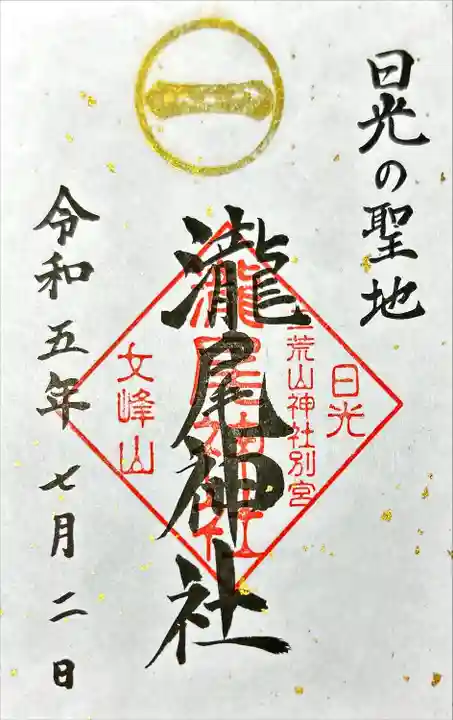 日光の聖地
日光
二荒山神社別宮
瀧尾神社
瀧尾神社
女峰山
令和五年七月二日